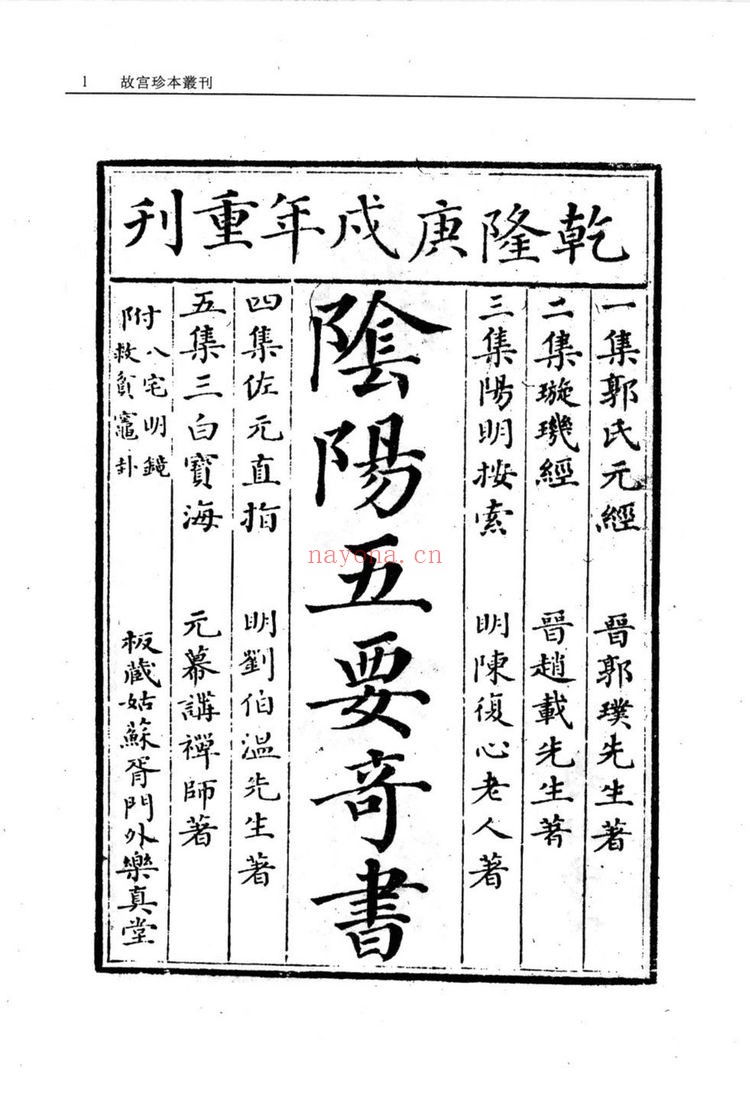 1 故宮珍本叢刊
乾隆庚戌年重刊
一集郭氏元經 晉郭璞先生著
二集璇璣經 晉趙載先生著
三集陽明按索 明陳復心老人著
陰陽五要奇書
四集佐元直指 明劉伯溫先生著
五集三白寶海 元幕講禪師著
附八宅明鏡
附救貧竈卦
板藏姑蘇胥門外樂真堂
nayona.cn